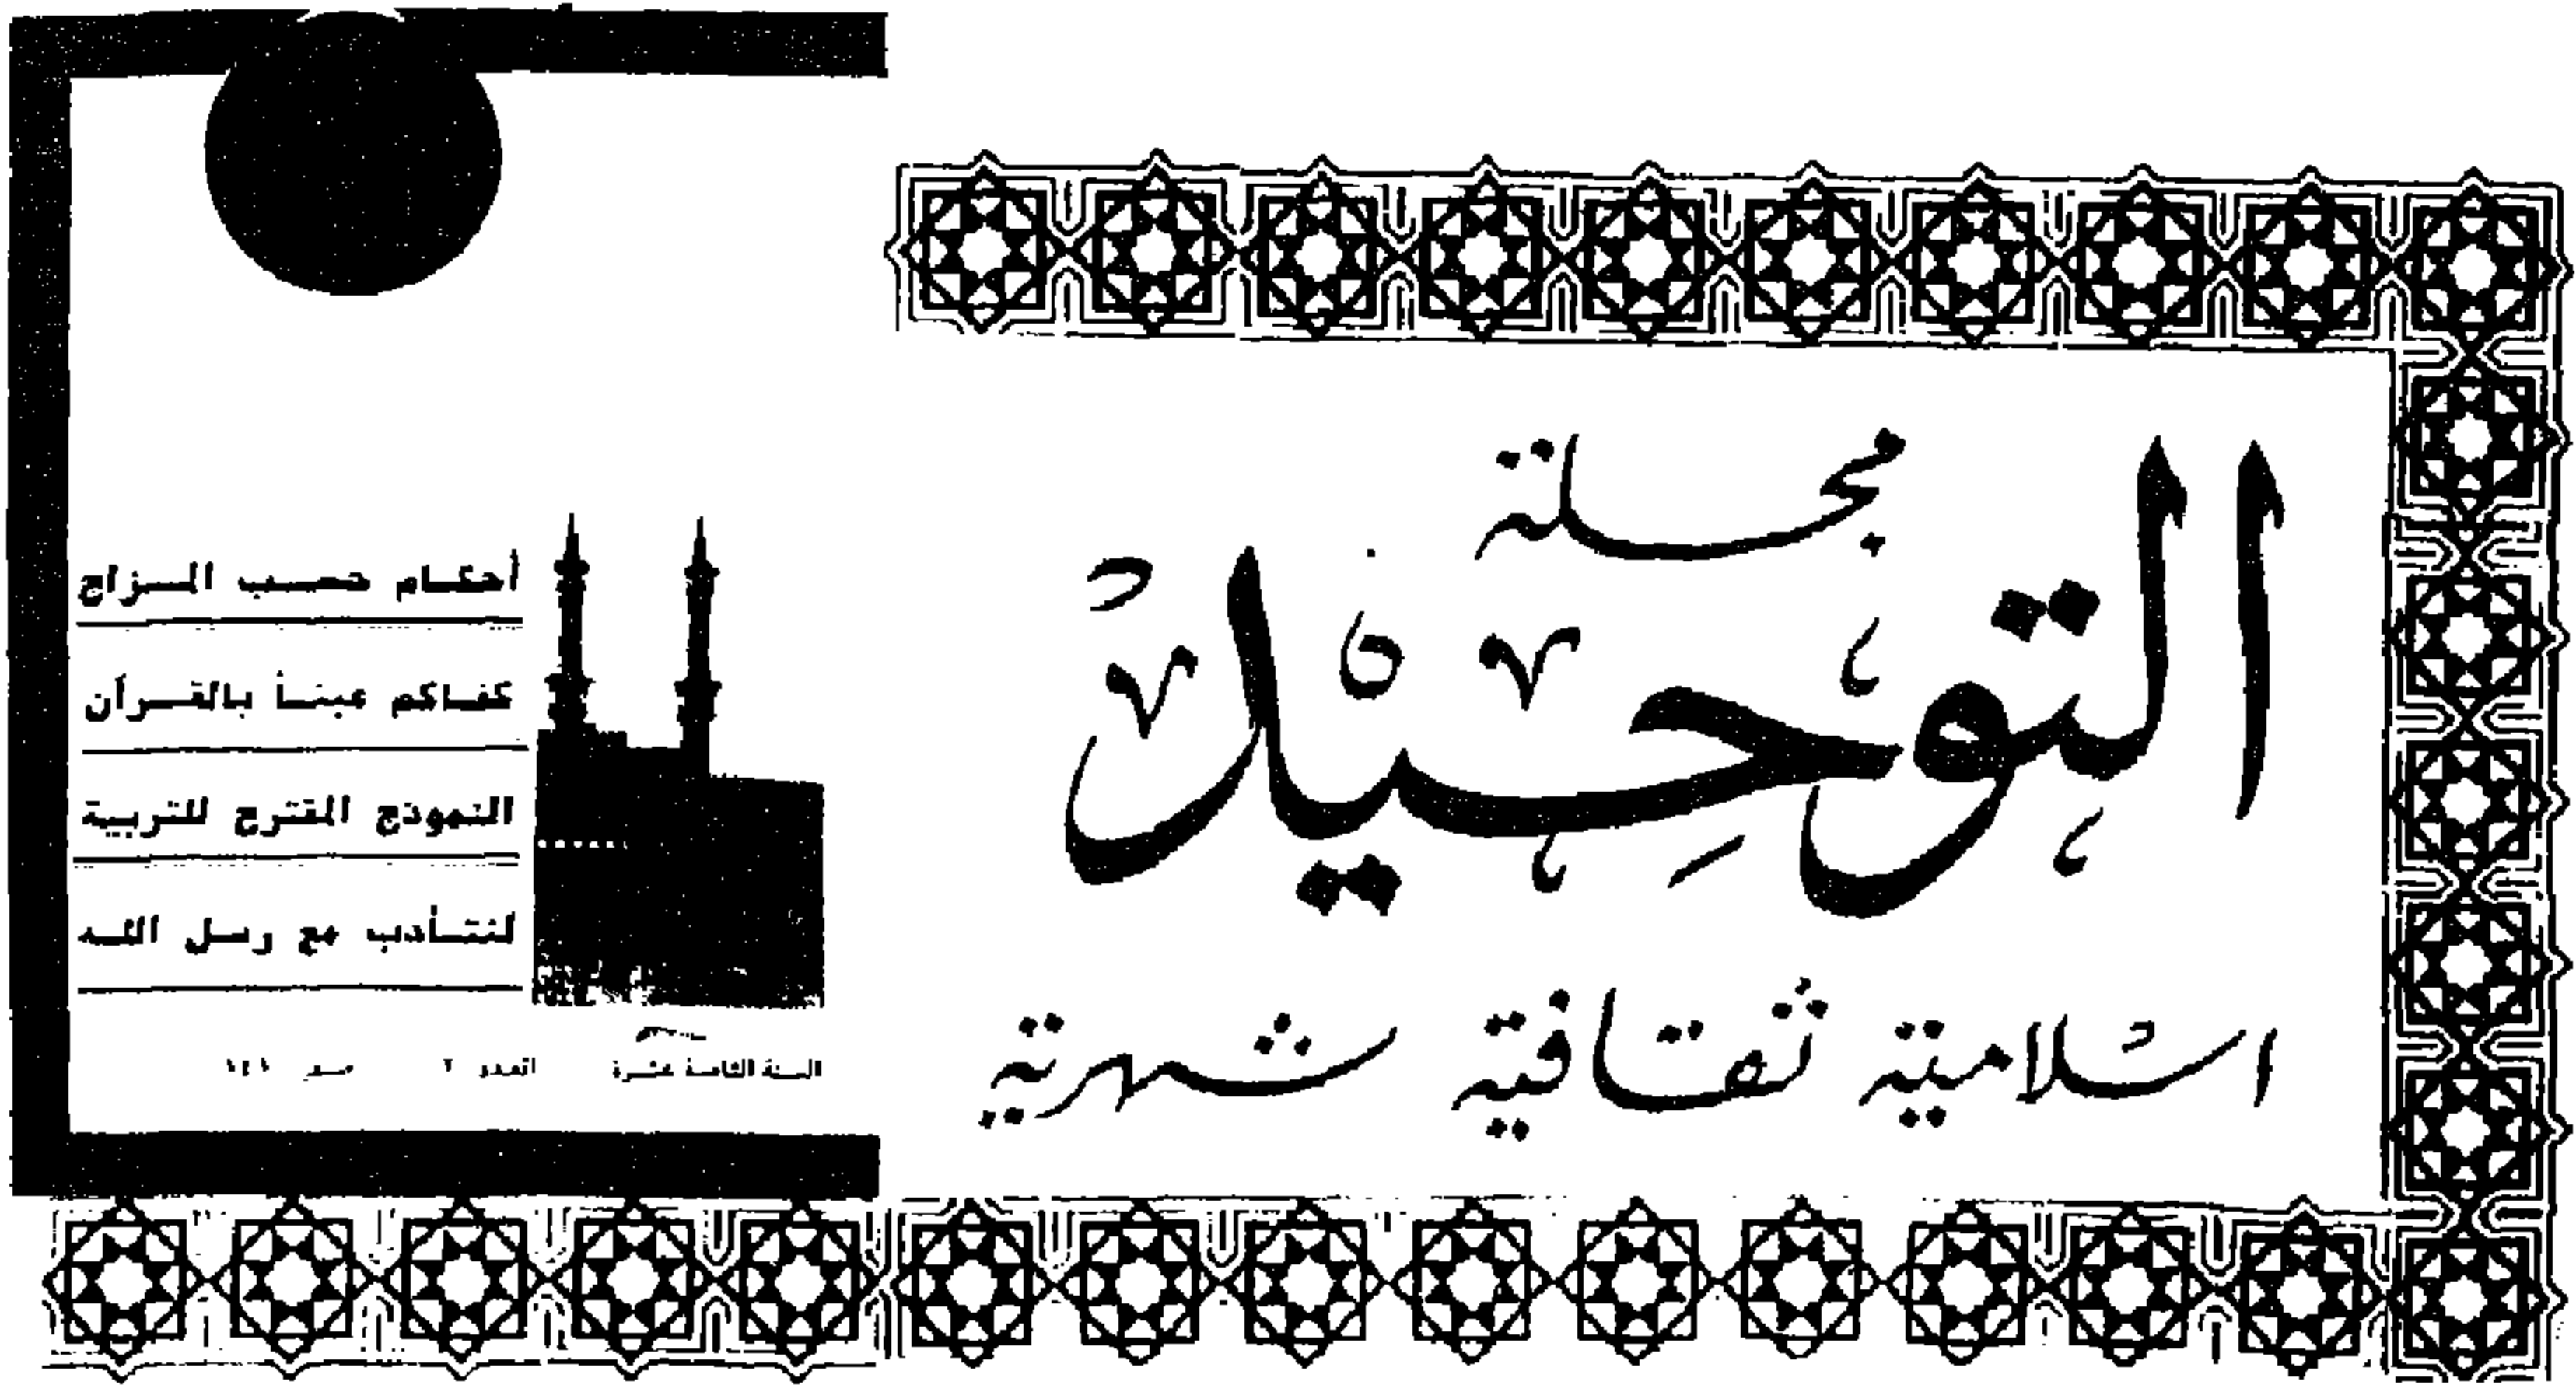 مجلة
التوحيد
اسلامية ثقافية شهرية
أحكام حسب المزاج
كفاكم عبثاً بالقرآن
النموذج المقترح للتربية
لنتأدب مع رسل الله
السنة الثامنة عشرة العدد ٢ صفر